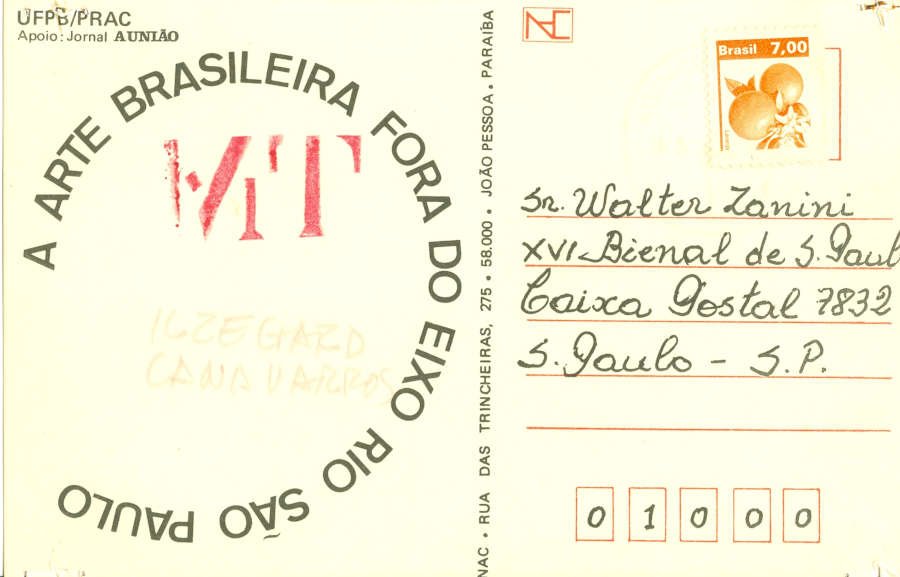 UFPB/PRAC
Apoio: Jornal A UNIÃO
A ARTE BRASILEIRA FORA DO EIXO RIO SÃO PAULO
MT
NAC • RUA DAS TRINCHEIRAS, 275 • 58.000 • JOÃO PESSOA • PARAIBA
Brasil 7,00
Laranja
Sr. Walter Zanini
XVI Bienal de S. Paul
Caixa Postal 7832
S. Paulo - S.P.
0 1 0 0 0